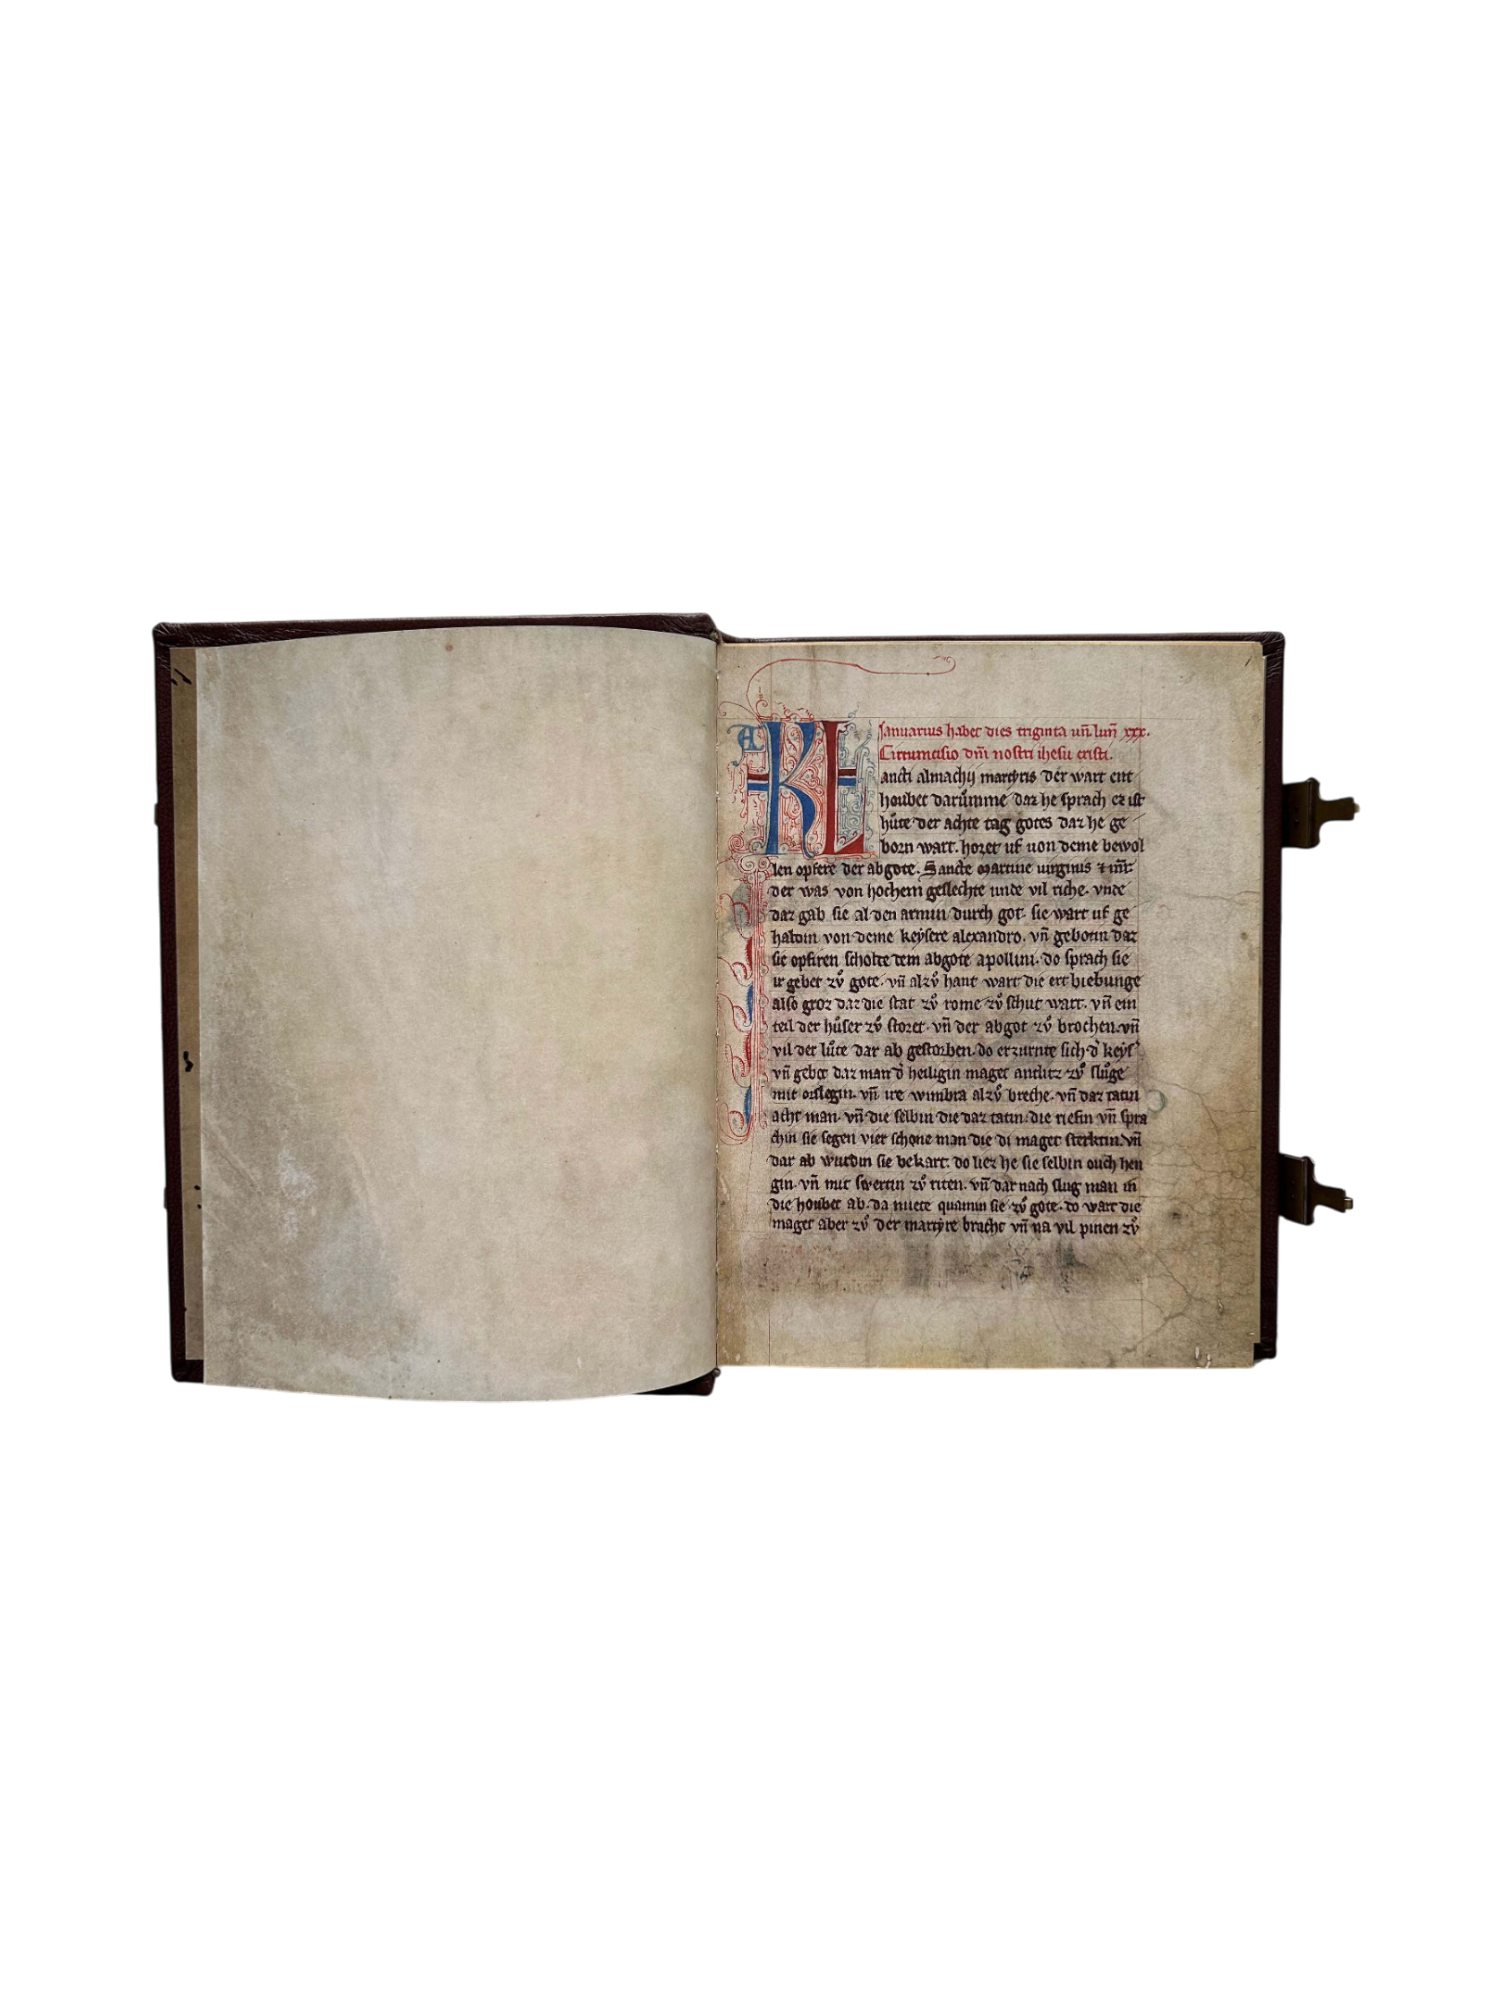 A KL Januarius habet dies triginta vn̄ lun̄ xxx.
Circumcisio dn̄i nostri ihesu cristi.
ancti almachij martyris der wart ent
houbet darůmme daz he sprach ez ist
hůte der achte tag gotes daz he ge
born wart. horet uf uon deme bewol
len opfere der abgote. Sancte Martine uirginis
der was von hochem geslechte unde vil riche. vnde
daz gab sie al den armin durch got. sie wart uf ge
haldin von deme keysere alexandro. vn̄ gebotin daz
sie opfiren scholte dem abgote apollini. do sprach sie
ir gebet zů gote. vn̄ alzů hant wart die ert biebunge
also groz daz die stat zů rome zů schut wart. vn̄ ein
teil der hůser zů storet. vn̄ der abgot zů brochen. vn̄
vil der lůte dar ab gestorben. do erzurnte sich d' keys'
vn̄ gebot daz man d' heiligin maget antlitz zů slůge
mit orslegin. vn̄ ire winbra alzů breche. vn̄ daz tatin
acht man. vn̄ die selbin die daz tatin. die riefin vn̄ spra
chin sie segen vier schone man die di maget sterktin. vn̄
dar ab wurdin sie bekart. do liez he sie selbin ouch hen
gin. vn̄ mit swertin zů riten. vn̄ dar nach slug man in
die houbet ab. da miete quamin sie zů gote. do wart die
maget aber zů der martyre bracht vn̄ na vil pinen zů